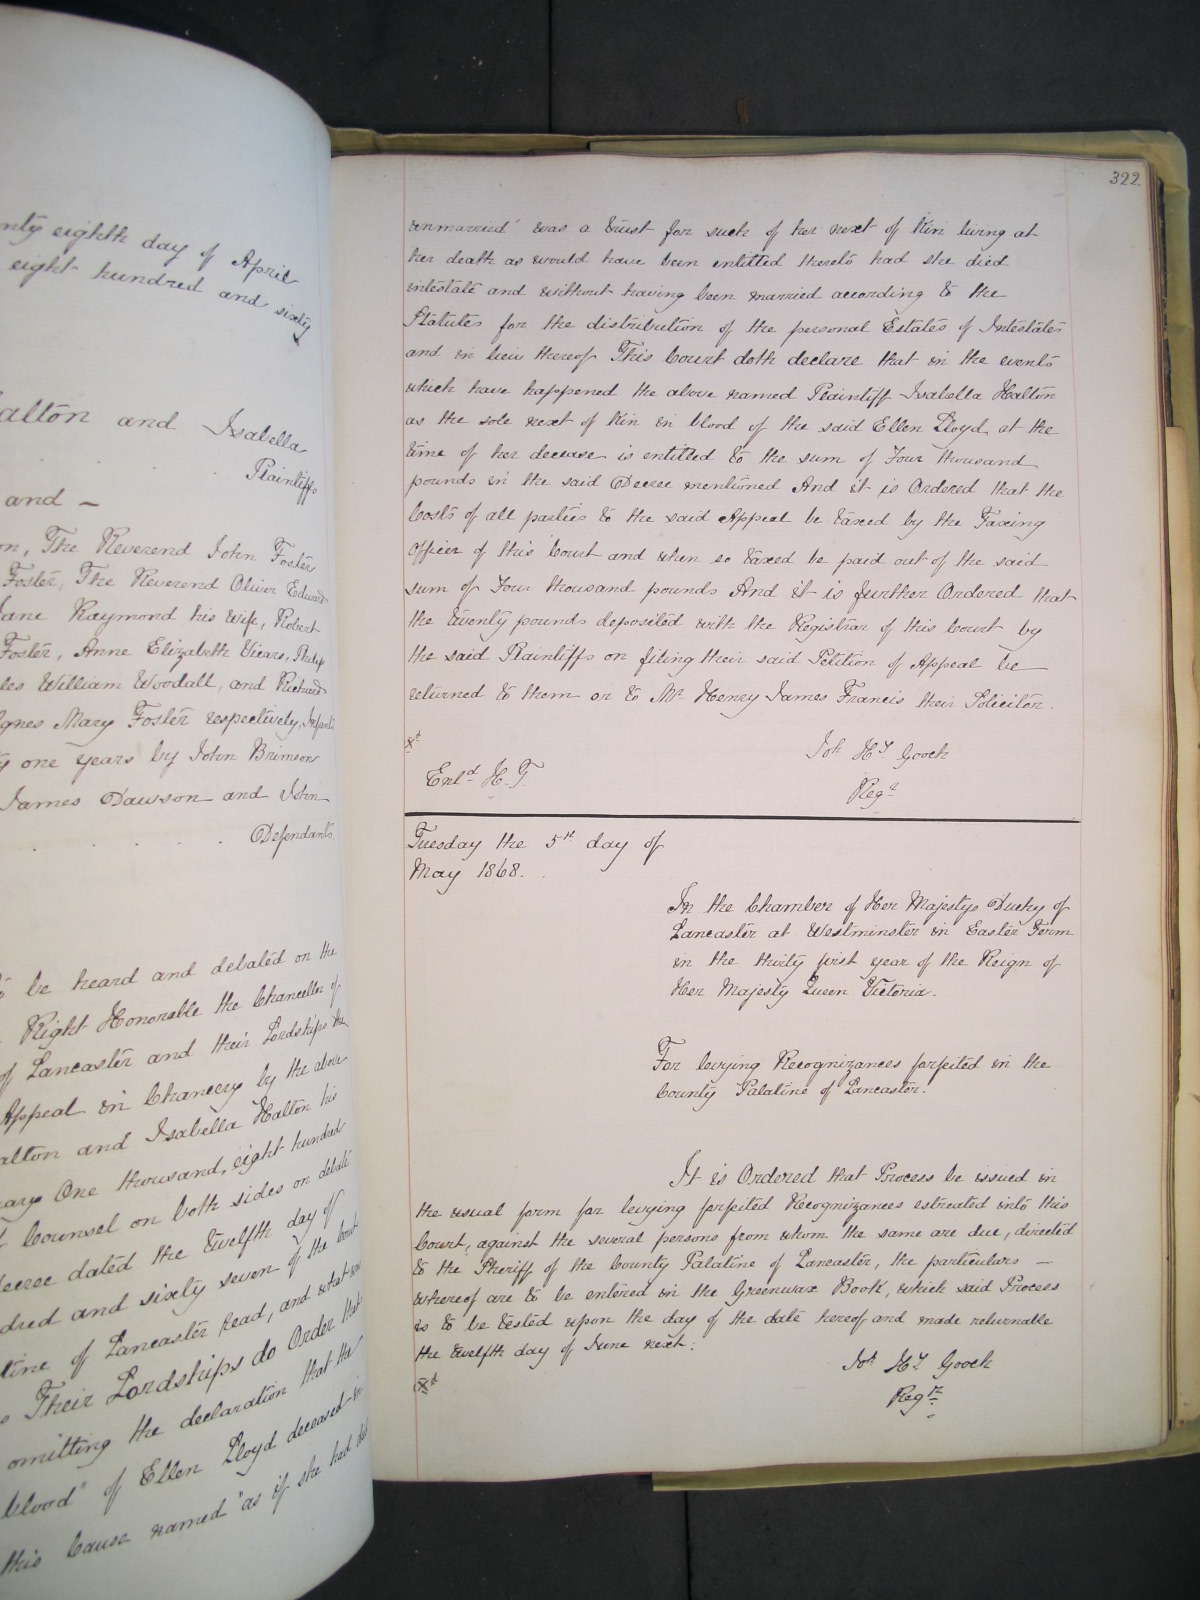 nty eighth day of April
eight hundred and sixty
alton and Isabella
Plaintiffs
and —
on, The Reverend John Foster
Foster, The Reverend Oliver Edward
Jane Raymond his wife, Robert
Foster, Anne Elizabeth Vicars, Philip
les William Woodall, and Richard
Agnes Mary Foster respectively, Infants
y one years by John Brimson
James Dawson and John
Defendants.
to be heard and debated on the
Right Honorable the Chancellor of
of Lancaster and their Lordships the
Appeal in Chancery by the above
alton and Isabella Halton his
ary One thousand, eight hundred
Counsel on both sides on debate
ecree dated the twelfth day of
dred and sixty seven of the Court
tine of Lancaster read, and what was
Their Lordships do Order that
omitting the declaration that the
blood" of Ellen Lloyd deceased in
this Cause named "as if she had died
322.
unmarried" was a trust for such of her next of kin living at
her death as would have been entitled thereto had she died
intestate and without having been married according to the
Statutes for the distribution of the personal Estates of Intestates
and in lieu thereof This Court doth declare that in the events
which have happened the above named Plaintiff Isabella Halton
as the sole next of kin in blood of the said Ellen Lloyd at the
time of her decease is entitled to the sum of Four thousand
pounds in the said Decree mentioned And it is Ordered that the
Costs of all parties to the said Appeal be taxed by the Taxing
Officer of this Court and when so taxed be paid out of the said
sum of Four thousand pounds And it is further Ordered that
the twenty pounds deposited with the Registrar of this Court by
the said Plaintiffs on filing their said Petition of Appeal be
returned to them or to Mr. Henry James Francis their Solicitor.
Joh Hy Gooch
Entd H. T.
Regr
Tuesday the 5th day of
May 1868.
In the Chamber of Her Majestys Duchy of
Lancaster at Westminster in Easter Term
in the thirty first year of the Reign of
Her Majesty Queen Victoria.
For levying Recognizances forfeited in the
County Palatine of Lancaster.
It is Ordered that Process be issued in
the usual form for levying forfeited Recognizances estreated into this
Court, against the several persons from whom the same are due, directed
to the Sheriff of the County Palatine of Lancaster, the particulars —
whereof are to be entered in the Greenwax Book, which said Process
is to be tested upon the day of the date hereof and made returnable
the twelfth day of June next:
Joh Hy Gooch
Regr